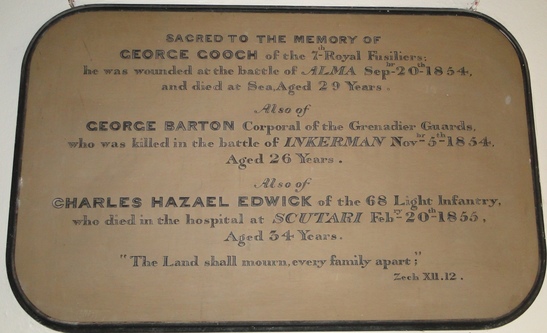 SACRED TO THE MEMORY OF
GEORGE GOOCH of the 7th Royal Fusiliers;
he was wounded at the battle of ALMA Sepbr 20th 1854,
and died at Sea. Aged 29 Years.
Also of
GEORGE BARTON Corporal of the Grenadier Guards,
who was killed in the battle of INKERMAN Novbr 5th 1854,
Aged 26 Years.
Also of
CHARLES HAZAEL EDWICK of the 68 Light Infantry,
who died in the hospital at SCUTARI Feby 20th 1855,
Aged 34 Years.
"The Land shall mourn, every family apart;"
Zech XII.12.